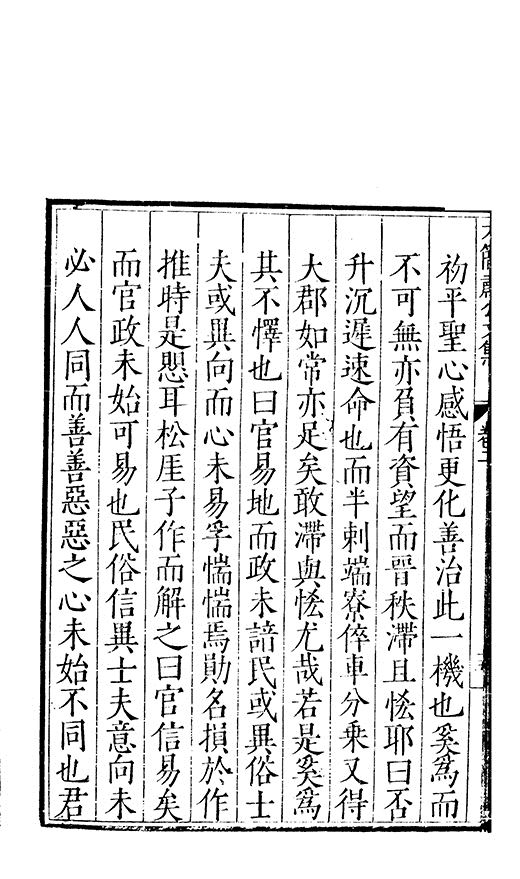 初平聖心感悟更化善治此一機也奚爲而
不可無亦負有資望而晉秩滯且恡耶曰否
升沉遲速命也而半刺端寮倅車分乗又得
大郡如常亦足矣敢滯與恡尤哉若是奚爲
其不懌也曰官易地而政未諳民或異俗士
夫或異向而心未易孚惴惴焉勛名損於作
推時是愳耳松厓子作而解之曰官信易矣
而官政未始可易也民俗信異士夫意向未
必人人同而善善惡惡之心未始不同也君